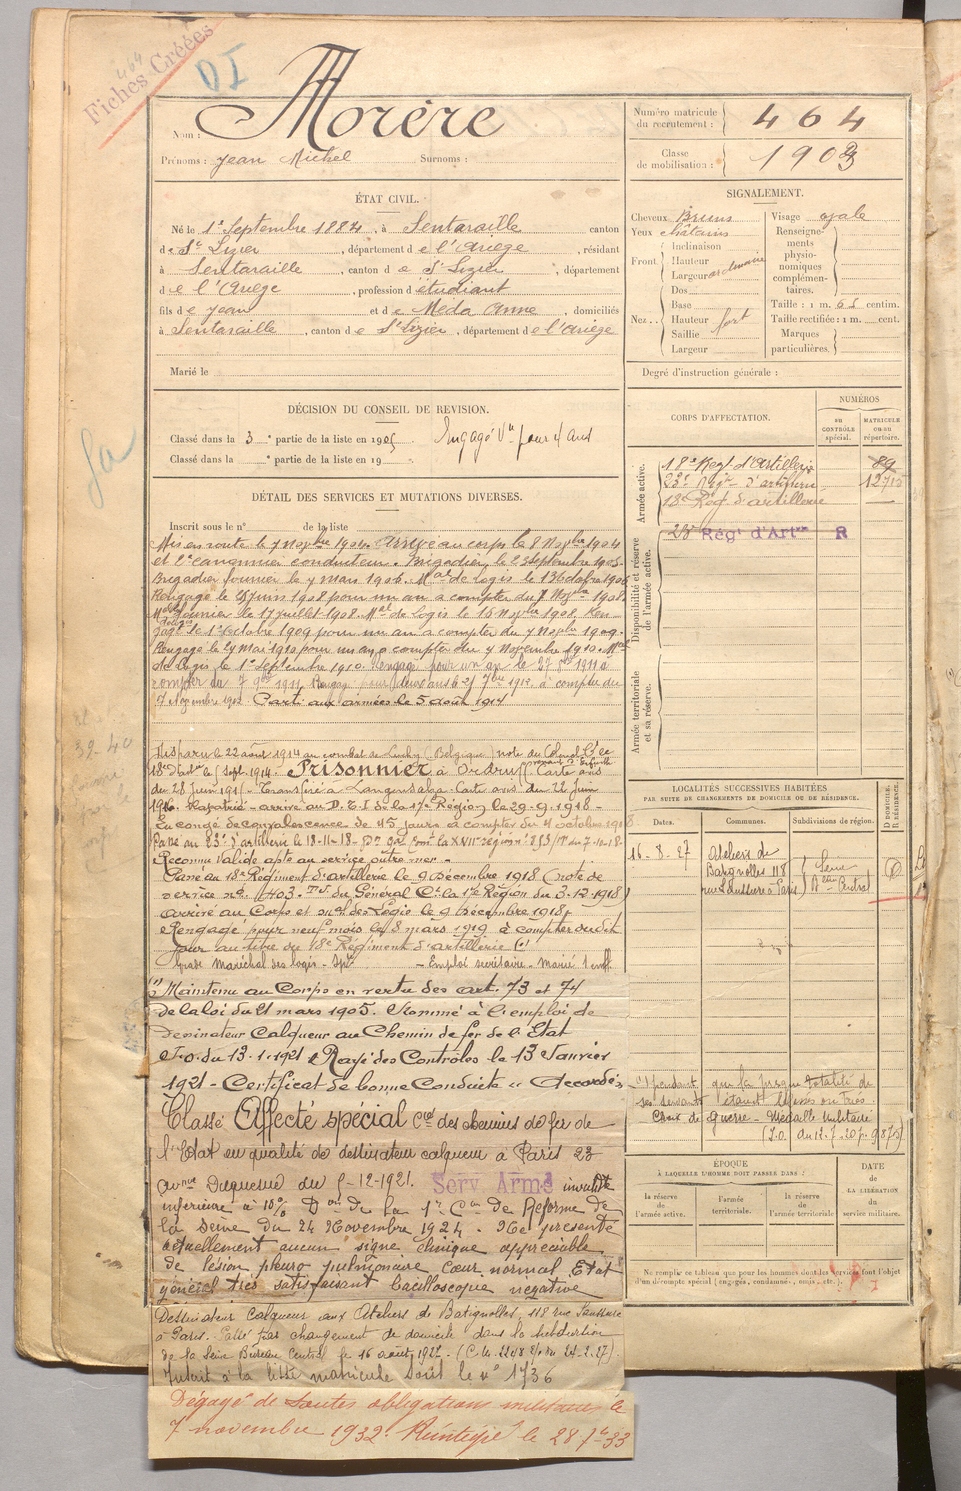 Fiches Créées
464
DI
Nom : Morère
Prénoms : Jean Michel Surnoms :
Numéro matricule du recrutement : 464
Classe de mobilisation : 1903
ÉTAT CIVIL.
Né le 1er Septembre 1884, à Sentaraille canton
de St Lizier, département de l'Ariège, résidant
à Sentaraille, canton de St Lizier, département
de l'Ariège, profession d'étudiant
fils de Jean et de Meda Anne, domiciliés
à Sentaraille, canton de St Lizier, département de l'Ariège
Marié le
SIGNALEMENT.
Cheveux Bruns
Yeux châtains
Front Inclinaison
Hauteur
Largeur ordinaire
Nez Dos
Base
Hauteur fort
Saillie
Largeur
Visage ovale
Renseignements physionomiques complémentaires.
Taille : 1 m. 65 centim.
Taille rectifiée : 1 m. cent.
Marques particulières.
Degré d'instruction générale :
DÉCISION DU CONSEIL DE REVISION.
Classé dans la 3e partie de la liste en 1905 Engagé Vre pour 4 ans
Classé dans la e partie de la liste en 19
CORPS D'AFFECTATION.
NUMÉROS
au CONTRÔLE spécial.
MATRICULE ou au répertoire.
Armée active.
18e Régt d'Artillerie 89
23e Régt d'artillerie 12715
18e Rég. d'artillerie
Disponibilité et réserve de l'armée active.
23e Régt d'Artie R
Armée territoriale et sa réserve.
DÉTAIL DES SERVICES ET MUTATIONS DIVERSES.
Inscrit sous le n° de la liste
Mis en route le 7 Novbre 1904. Arrivé au corps le 8 Novbre 1904
et 2e canonnier conducteur. Brigadier le 23 septembre 1905.
Brigadier fourrier le 7 mars 1906. Mal de logis le 13 octobre 1906
Rengagé le 25 juin 1908 pour un an à compter du 7 Novbre 1908.
Mal des logis fourrier le 17 juillet 1908. Mal de logis le 15 Novbre 1908. Ren
gagé le 1er octobre 1909 pour un an à compter du 7 Novbre 1909.
Rengagé le 27 mai 1910 pour un an à compter du 7 Novembre 1910. Mal
de logis le 1er septembre 1910. Rengagé pour un an le 27 1911 à
compter du 7 9bre 1911. Rengagé pour deux ans le 21 7bre 1912 à compter du
7 Novembre 1912. Parti aux armées le 5 août 1914
Disparu le 22 août 1914 au combat de Luchy (Belgique) note du Colonel Ct le
18e d'Artie le sept. 1914. Prisonnier à Ordruff Carte avis
du 28 Juin 191 - Transféré à Langensalza. Carte avis du 22 Juin
1916. Rapatrié - arrivé au D.T.I. de la 17e Région le 29-9-1918 -
En congé de convalescence de 45 jours à compter du 4 octobre 1918
Passé au 23e d'artillerie le 18-11-18
Reconnu valide apte au service outre mer -
Passé au 18e Régiment d'artillerie le 9 Décembre 1918 (note de
service n° 1403 du Général Ct la 17e Région du 3-12-1918)
arrivé au Corps et mal des Logis le 9 Décembre 1918
Rengagé pour neuf mois le 8 mars 1919 à compter du dit
jour au titre du 18e Régiment d'artillerie (1)
Grade Maréchal des logis - - Emploi secrétaire - Marié 1 enft
(1) Maintenu au Corps en vertu des art. 73 et 74
de la loi du 21 mars 1905. Nommé à l'emploi de
Dessinateur Calqueur au Chemin de fer de l'Etat
J.O. du 13-1-1921 Rayé des Contrôles le 13 Janvier
1921 - Certificat de bonne Conduite « Accordé »
Classé Affecté spécial Cie des chemins de fer de
l'Etat en qualité de dessinateur calqueur à Paris 23
avnue Duquesne du -12-1921. Serv Armé invalidité
inférieure à 10% Don de la 1e Con de Réforme de
la Seine du 24 Novembre 1924. Ne présente
actuellement aucun signe clinique appréciable
de lésion pleuro pulmonaire cœur normal Etat
général très satisfaisant bacilloscopie négative
Dessinateur calqueur aux Ateliers de Batignolles, 118 rue Saussure
à Paris. Passé par changement de domicile dans la subdivision
de la Seine Bureau Central le 16 août 1927.
Inscrit à la liste matricule sous le n° 1736
Dégagé de toutes obligations militaires le
7 novembre 1932. Réintégré le 28 33
LOCALITÉS SUCCESSIVES HABITÉES
PAR SUITE DE CHANGEMENTS DE DOMICILE OU DE RÉSIDENCE.
Dates. Communes. Subdivisions de région. D DOMICILE. R RÉSIDENCE.
16-8-27 Ateliers de Batignolles 118 rue Saussure à Paris Seine Bau Central D
(1) pendant que la presque totalité de
ses servants étaient blessés ou tués
Croix de guerre - Médaille militaire
(J.O. du 12-7-20 p. 9873)
ÉPOQUE
À LAQUELLE L'HOMME DOIT PASSER DANS :
la réserve de l'armée active.
l'armée territoriale.
la réserve de l'armée territoriale.
DATE DE LA LIBÉRATION du service militaire.
Ne remplir ce tableau que pour les hommes dont les Services font l'objet
d'un décompte spécial (engagés, condamnés, omis, etc.)